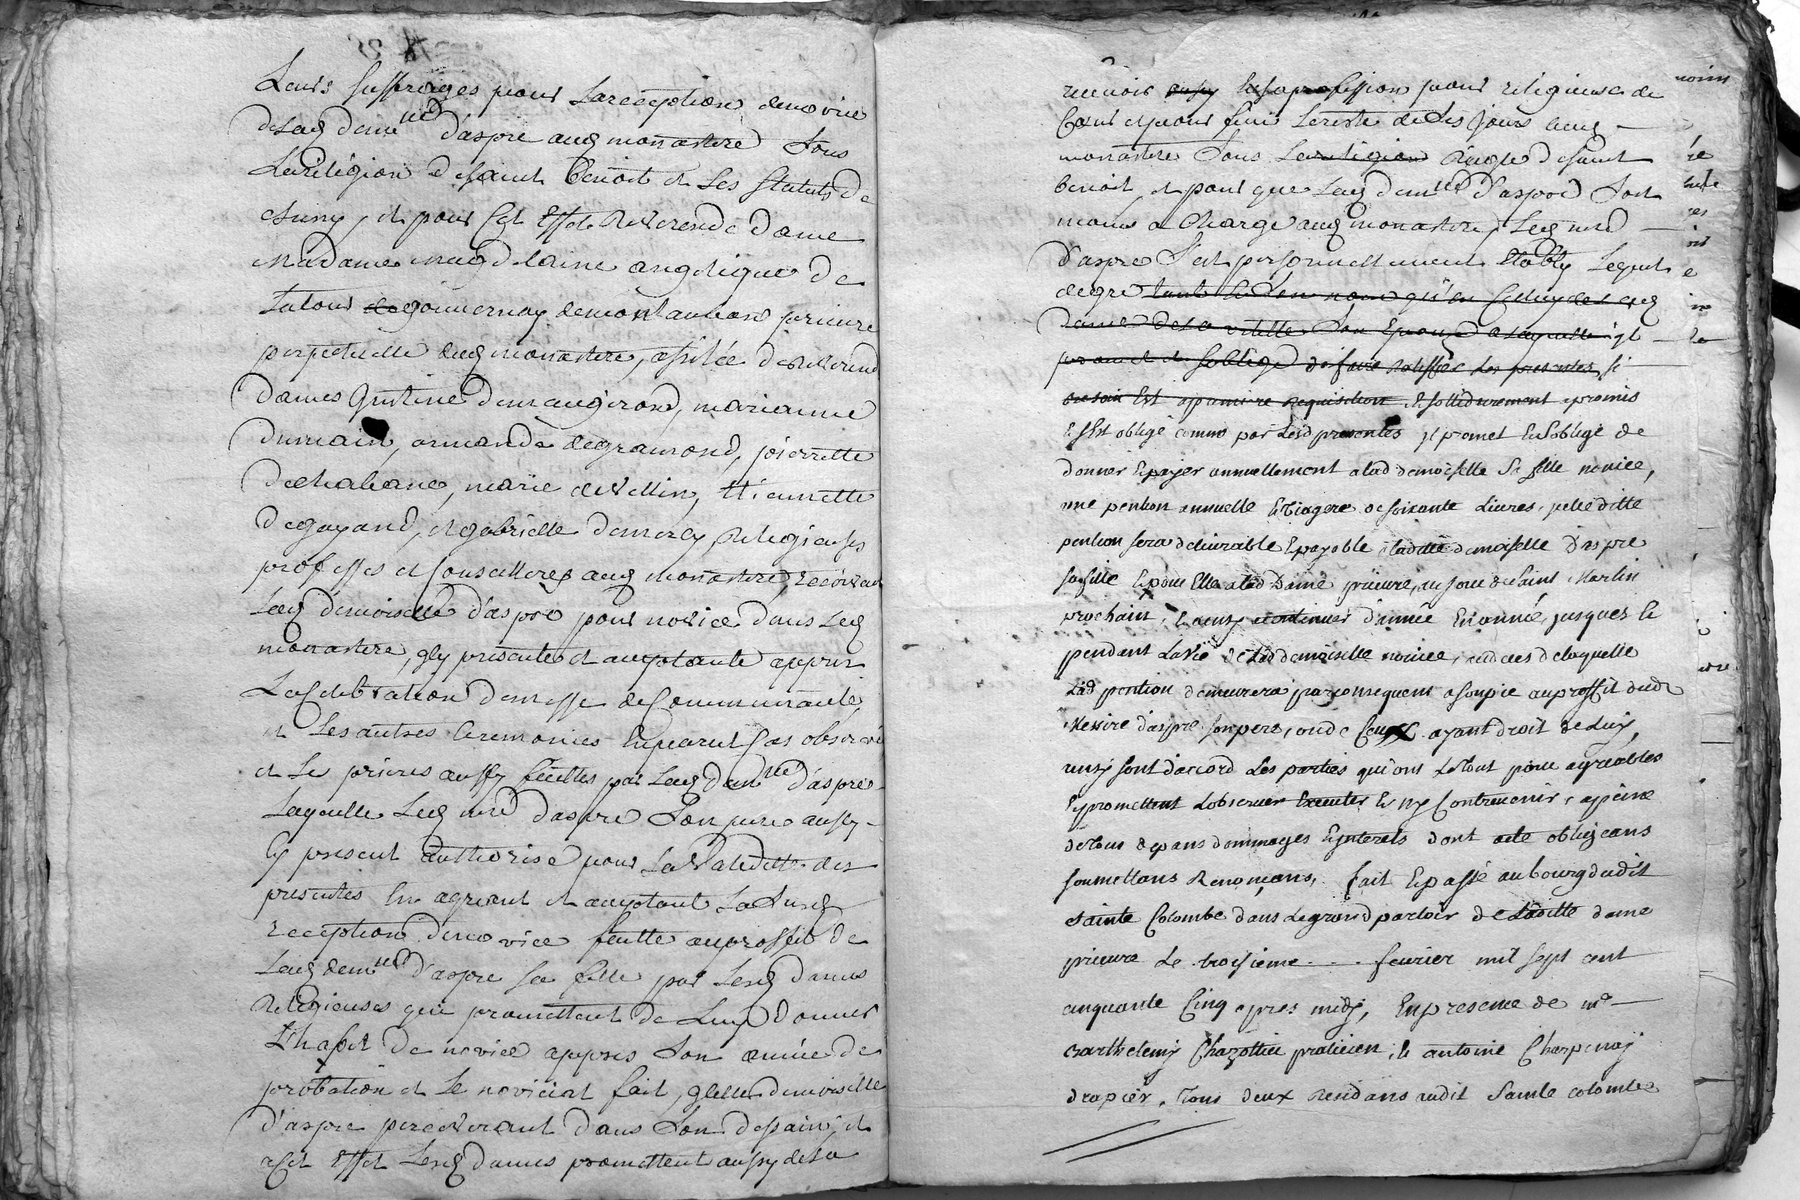 Leurs suffrages pour la reception de novice
de lad demlle d'aspre aud monastere sous
La réligion de saint Benoit et les statuts de
cluny, et pour cet effet Reverende dame
Madame magdelaine angelique de
Latour gouvernay de montauban prieure
perpetuelle dud monastere, assistée de Reverend
dames justine de maugiron, marianne
dumain, armande degramond, pierrette
dechabane, marie de Vellin, thiennette
degayand, et gabrielle demercy Religieuses
professes et conseilleres aud monastere, recoivent
Lad demoiselle d'aspre pour novice dans led
monastere, y presente et acceptante appres
La Celebration de messe de communauté
et les autres Ceremonies en pareil cas observé
et les prieres aussy faittes par lad demlle d'aspre
laquelle led d'aspre son pere aussy
y present authorise pour la validité des
presentes en agreant et acceptant la susd
reception de novice faitte au proffit de
lad demlle d'aspre sa fille par lesd dames
Religieuses qui promettent de luy donner
l'habit de novice appres son année de
probation et le noviciat fait, demoiselle
d'aspre perseverant dans son dessain, et
cet effet lesd dames promettent aussy de la
recevoir en sa profession pour réligieuse de
Cœur et pour finir le reste de ses jours aud
monastere sous la religion Régle de saint
benoit, et pour que lad demlle d'aspre soit
moins a charge aud monastere, led
d'aspre s'est personnellement étably lequel
degré tant de son nom qu'en celuy de lad
dame son Epouse a laquelle il
promet et s'oblige de faire ratiffier les presentes si
besoin est a premiere requisition et sollidairement a promis
et s'est obligé comme par lesd presentes il promet et s'oblige de
donner et payer annuellement a lad demoiselle sa fille novice,
une pention annuelle et viagere de soixante livres, quelle ditte
pention sera delivrable et payable a laditte demoiselle D'aspre
sa fille et pour Elle a lad Dame prieure, au jour de saint Martin
prochain, et ainsy continuer d'année en année, jusques et
pendant La vie de lad demoiselle novice, au deces de laquelle
Lad pention demeurera par consequent assoupie au proffit dudt
Messire d'aspre son pere, ou de Ceux ayant droit de Luy,
ainsy sont d'accord les parties qui ont le tout pour agréables
et promettent L'observer Executer et n'y Contrevenir, a peine
de tous depans dommages et interets dont acte obligeans
soumettans Renonçans, fait et passé au bourg dudit
sainte Colombe dans le grand parloir de laditte dame
prieure le troisieme fevrier mil sept cent
cinquante Cinq apres midy, En presence de me
Barthelemy Chazottier praticien, et antoine Charpenay
drapier, Tous deux residans audit Sainte colombe